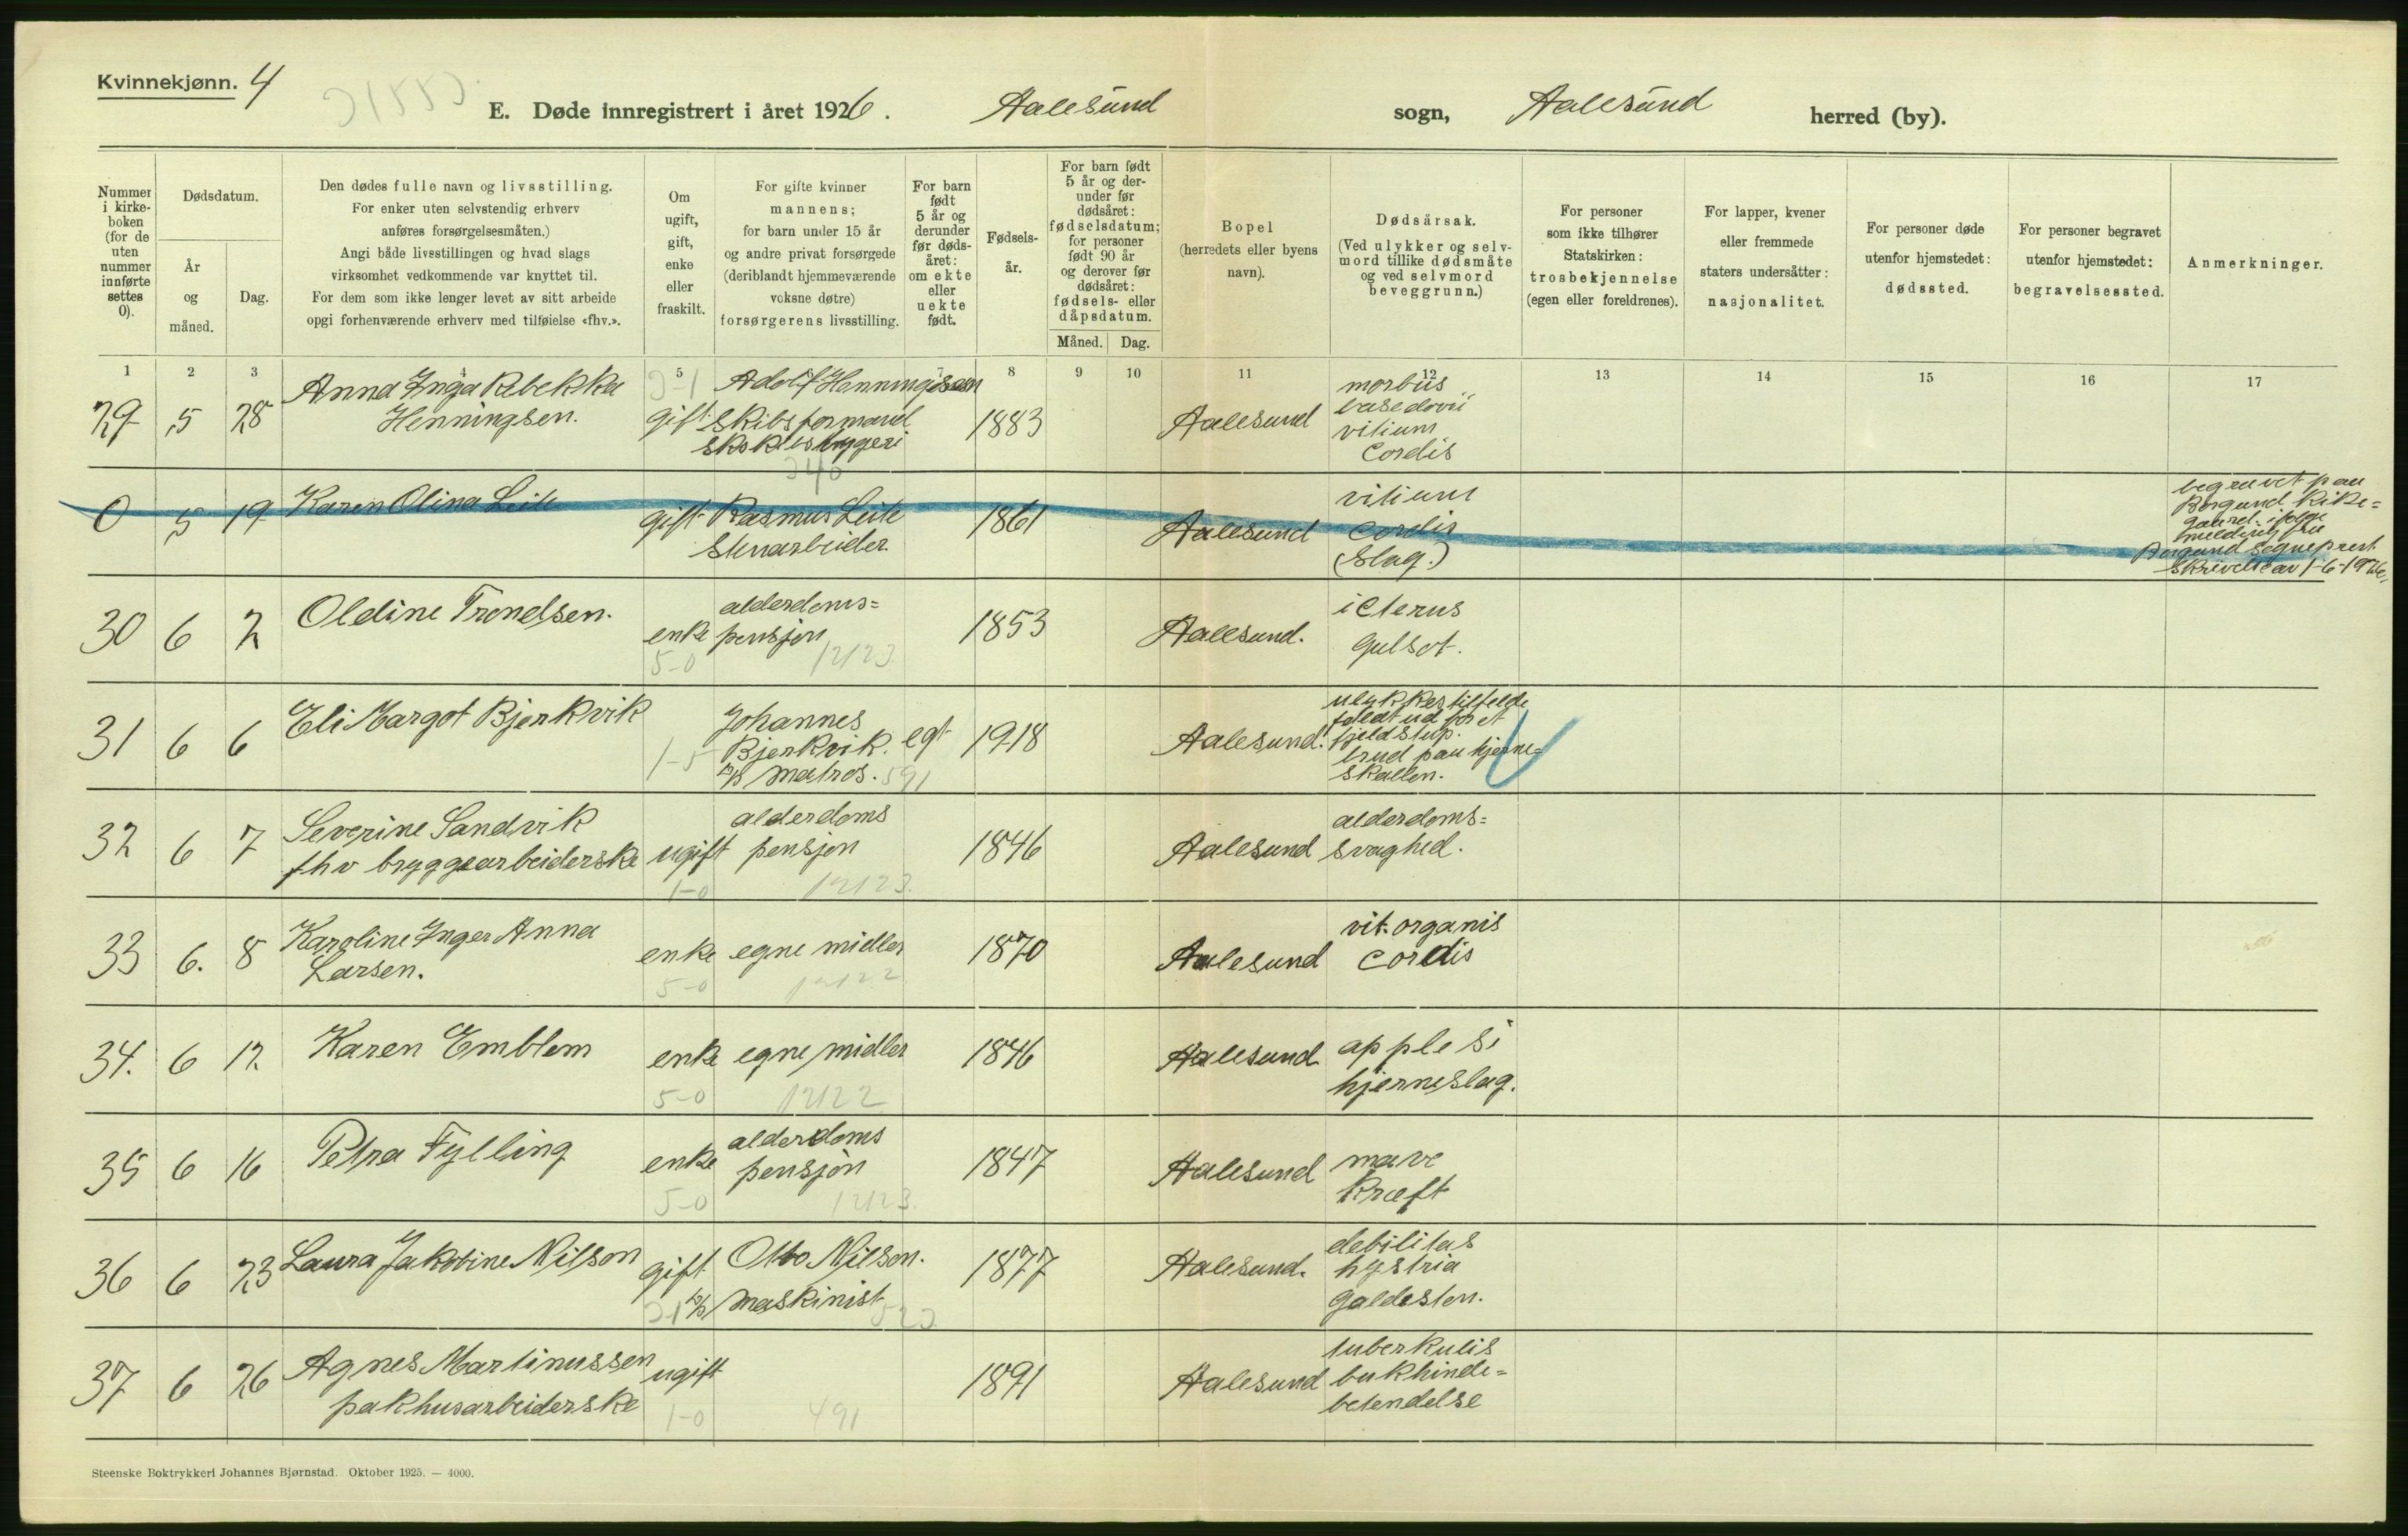 Kvinnekjønn. 4
E. Døde innregistrert i året 1926. Aalesund sogn, Aalesund herred (by).
Nummer i kirke-boken (for de uten nummer innførte settes 0).
Dødsdatum.
År og måned.
Dag.
Den dødes fulle navn og livsstilling.
For enker uten selvstendig erhverv
anføres forsørgelsesmåten.)
Angi både livsstillingen og hvad slags
virksomhet vedkommende var knyttet til.
For dem som ikke lenger levet av sitt arbeide
opgi forhenværende erhverv med tilføielse «fhv.».
Om ugift, gift, enke eller fraskilt.
For gifte kvinner
mannens;
for barn under 15 år
og andre privat forsørgede
(deriblandt hjemmeværende
voksne døtre)
forsørgerens livsstilling.
For barn født 5 år og derunder før døds-året: om ekte eller uekte født.
Fødsels-år.
For barn født 5 år og der-under før dødsåret: fødselsdatum; for personer født 90 år og derover før dødsåret: fødsels- eller dåpsdatum.
Måned. Dag.
Bopel
(herredets eller byens
navn).
Dødsårsak.
(Ved ulykker og selv-
mord tillike dødsmåte
og ved selvmord
beveggrunn.)
For personer
som ikke tilhører
Statskirken:
trosbekjennelse
(egen eller foreldrenes).
For lapper, kvener
eller fremmede
staters undersåtter:
nasjonalitet.
For personer døde
utenfor hjemstedet:
dødssted.
For personer begravet
utenfor hjemstedet:
begravelsessted.
Anmerkninger.
1 2 3 4 5 6 7 8 9 10 11 12 13 14 15 16 17
29 5 28 Anna Inga Rebekka
Henningsen.
gift
Adolf Henningsen
Skibsformand
1883 Aalesund
morbus
basedovii
vitium
Cordis
340
0 5 19 Karen Olina Leite
gift Rasmus Leite
Stenarbeider.
1861 Aalesund
vitium
Cordis
(Slag.)
begravet paa
Borgund Kirke=
gaard. ifølge
Borgund Sogneprest
Skrivelse av 1-6-1926.
30 6 2 Oldine Trondsen.
enke
alderdoms=
pensjon
5-0 12123
1853 Aalesund.
icterus
gulsot.
31 6 6 Eli Margot Bjerkvik
1-5
Johannes
Bjerkvik.
matros. 591
egt 1918 Aalesund.
ulykkestilfelde
faldt ud for et
fjeldstup.
brud paa hjerne=
skallen.
32 6 7 Severine Sandvik
fhv bryggearbeiderske
ugift
alderdoms
pensjon
1-0 12123.
1846 Aalesund
alderdoms=
svaghed.
33 6. 8 Karoline Inger Anna
Larsen.
enke egne midler
5-0 12122
1870 Aalesund
vit. organis
Cordis
34. 6 12. Karen Emblem
enke egne midler
5-0 12122
1846 Aalesund
applesi
hjerneslag.
35 6 16 Petra Fylling
enke
alderdoms
pensjon
5-0 12123.
1847 Aalesund
mave
Kræft
36 6 23 Laura Jakobine Nilson
gift
Otto Nilson.
maskinist
1877 Aalesund.
debilitas
hystria
Galdesten.
37 6 26 Agnes Martinussen
pakhusarbeiderske
ugift
1-0 491
1891 Aalesund
tuberkulis
bukhinde=
betendelse
Steenske Boktrykkeri Johannes Bjørnstad. Oktober 1925. — 4000.